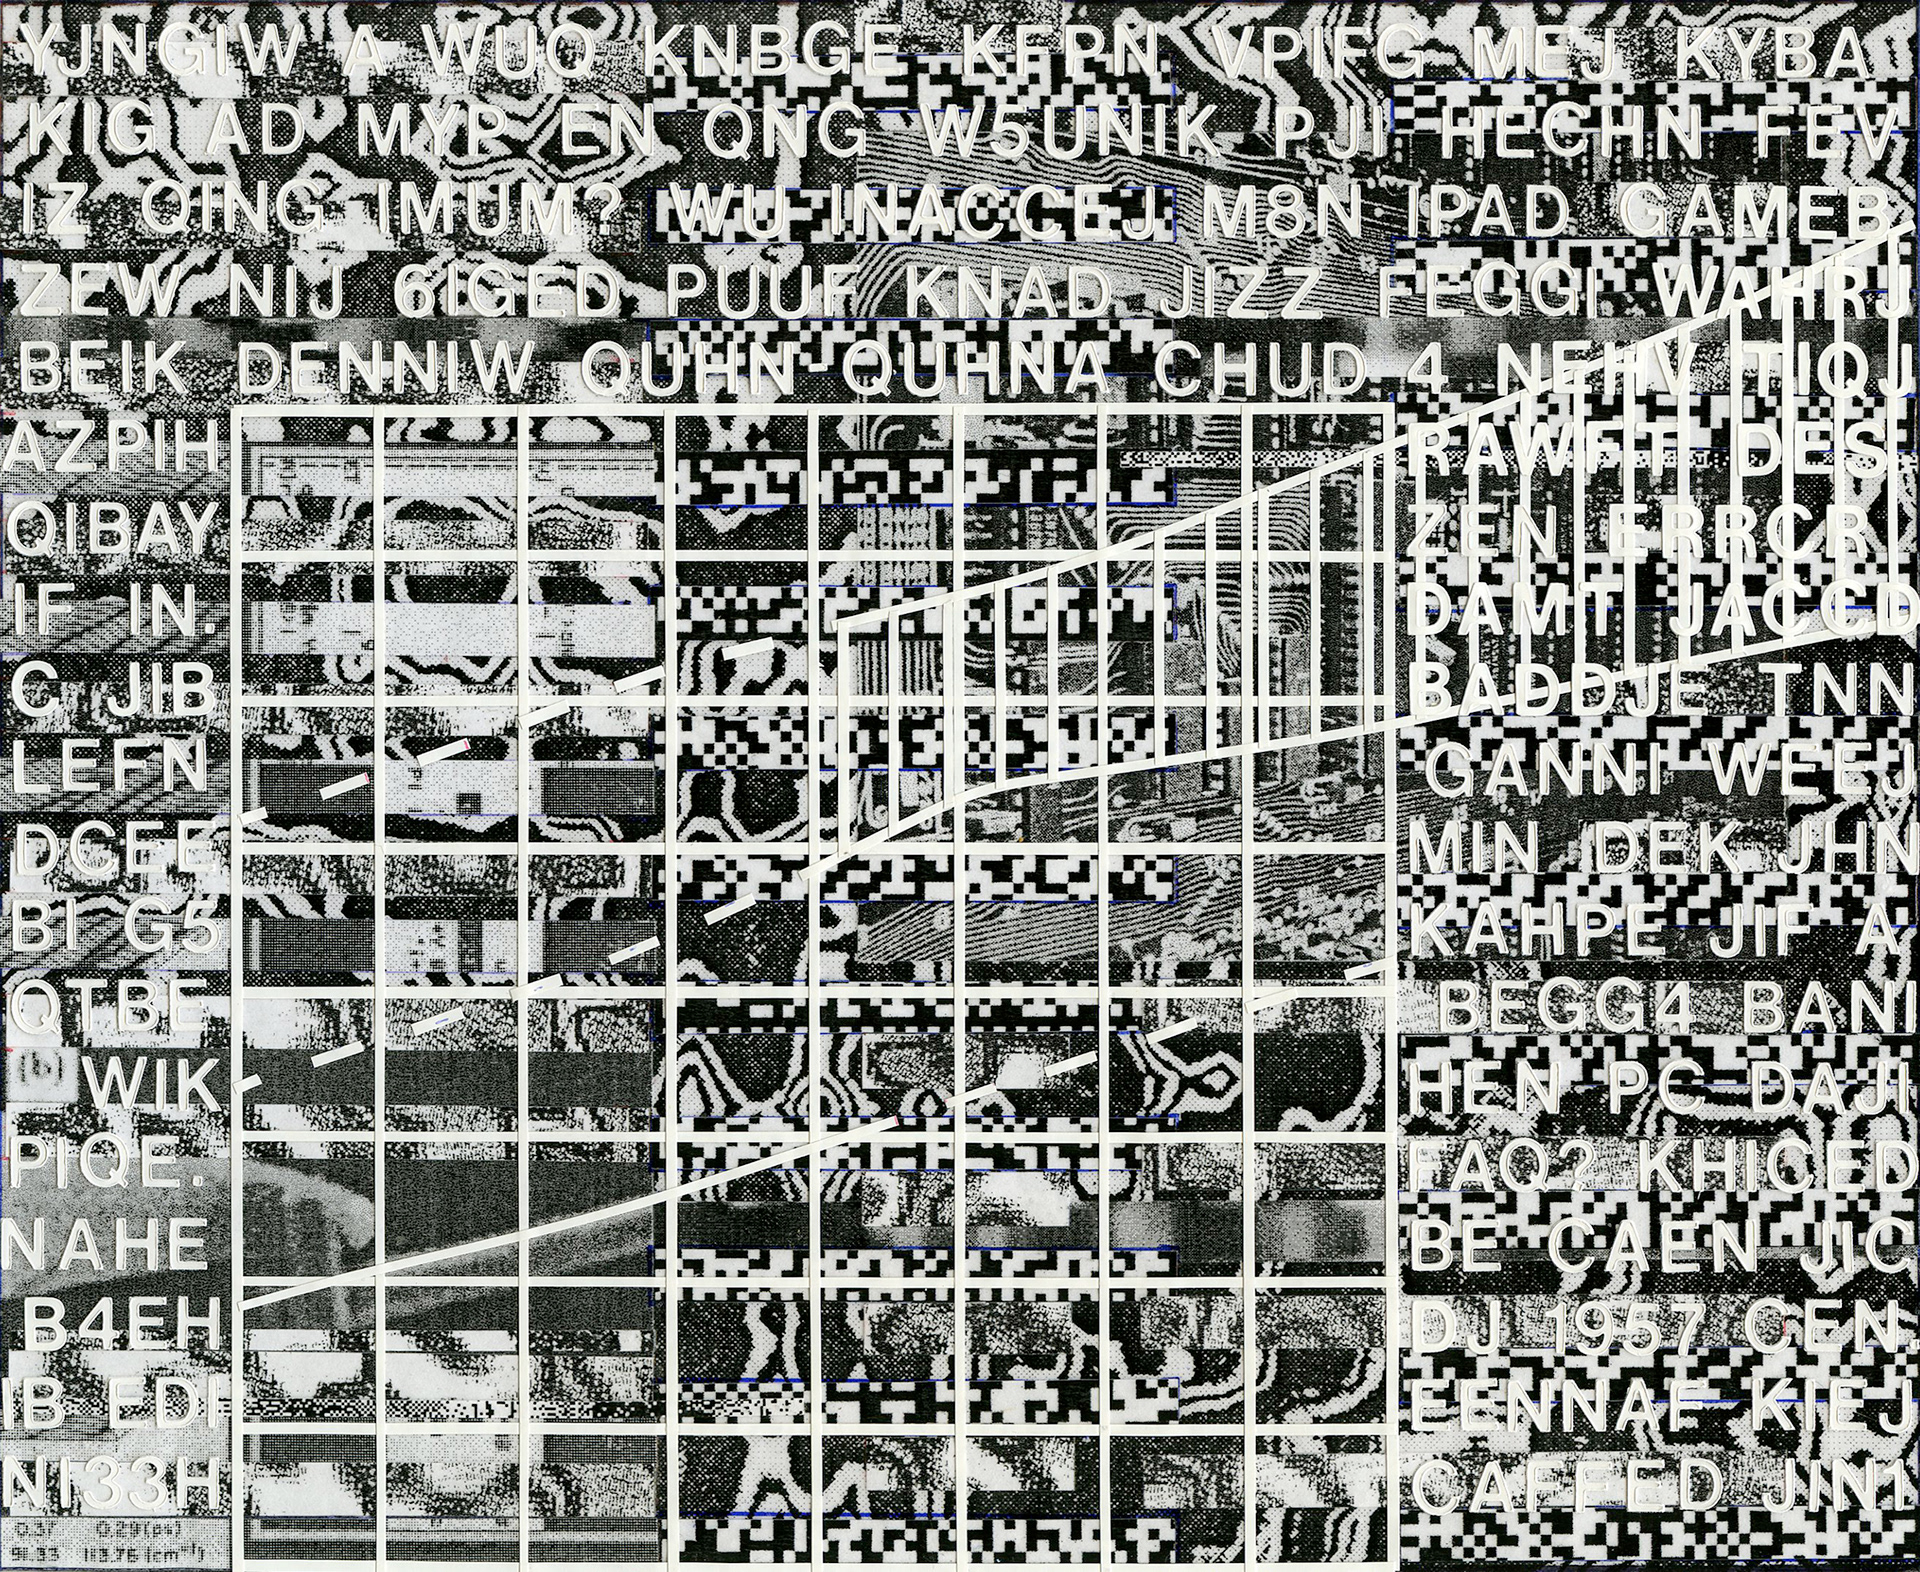 YJNGIW A WUQ KNBGE KFPN VPIFG MEJ KYBA
KIG AD MYP EN QNG W5UNIK PJI HECHN FEV
IZ QING IMUM? WU INACCEJ M8N IPAD GAMEB
ZEW NIJ 6IGED PUUF KNAD JIZZ FEGGI WAHRJ
BEIK DENNIW QUHN QUHNA CHUD 4 NEHV TIQJ
AZPIH
QIBAY
IF IN.
C JIB
LEFN
DCEE
BI G5
QTBE
(b) WIK
PIQE.
NAHE
B4EH
IB EDI
NI33H
0.37 0.29(ps)
91.33 113.76 (cm⁻¹)
RAWFT DES
ZEN ERRCR
DAMT JACCD
BADDJE TNN
GANNI WEEJ
MIN DEK JHN
KAHPE JIF A
BEGG4 BANI
HEN PC DAJI
FAQ? KHICED
BE CAEN JIC
DJ 1957 CEN.
EENNAF KIEJ
CAFFED JIN1